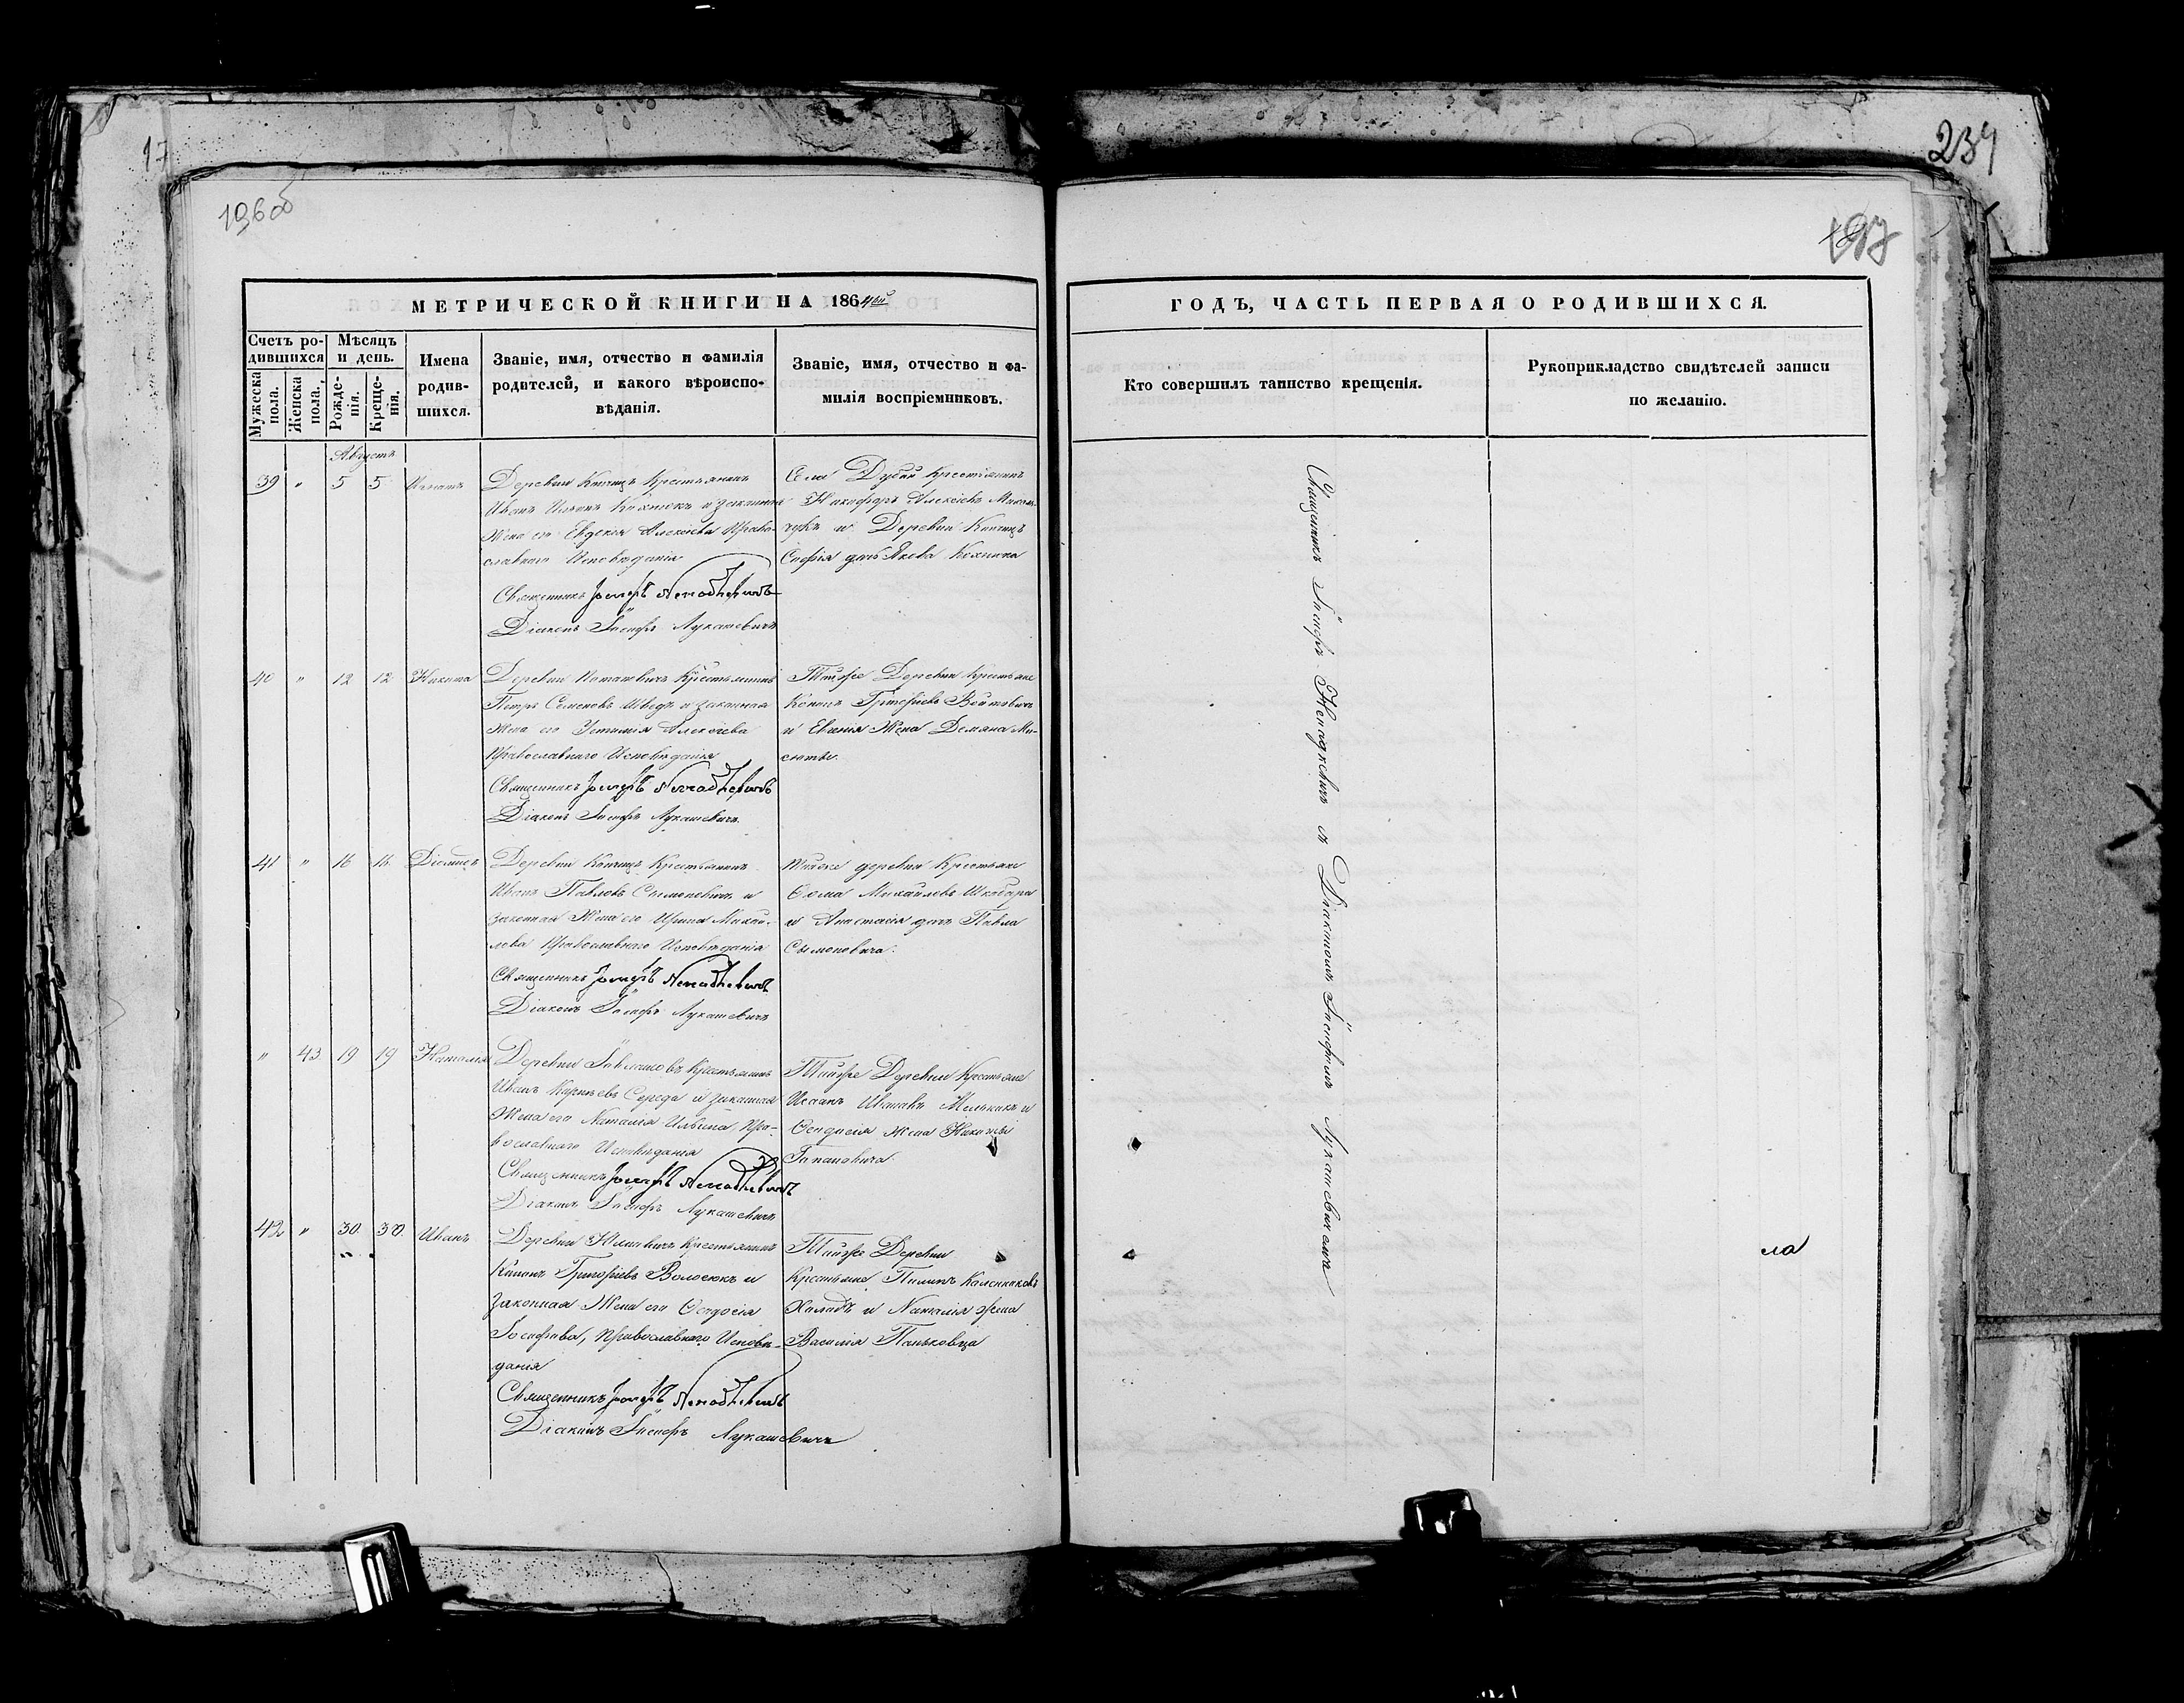 239
196 об
197
МЕТРИЧЕСКОЙ КНИГИ НА 1864ый
ГОДЪ, ЧАСТЬ ПЕРВАЯ О РОДИВШИХСЯ.
Счетъ ро-
дившихся
Мужеска
пола.
Женска
пола.
Мѣсяцъ
и день.
Рожде-
нія.
Креще-
нія.
Имена
родив-
шихся.
Званіе, имя, отчество и фамилія
родителей, и какого вѣроиспо-
вѣданія.
Званіе, имя, отчество и фа-
милія воспріемниковъ.
Кто совершилъ таинство крещенія.
Рукоприкладство свидѣтелей записи
по желанію.
Августъ
39 " 5 5 Игнатъ
Деревни Крестьянинъ
Иванъ Ильинъ и законная
Жена его Евдокія Алексіева Право-
славнаго Исповѣданія
Священникъ Іосифъ Ненадкевичъ
Діаконъ Іосифъ Лукашевичъ
Села Дубой Крестьянинъ
Никифоръ Алексіевъ
и Деревни
Софія дочь Якова
40 " 12 12 Никита
Деревни Крестьянинъ
Петръ Семеновъ Шведъ и законная
Жена его Устинія Алексіева
Православнаго Исповѣданія
Священникъ Іосифъ Ненадкевичъ
Діаконъ Іосифъ Лукашевичъ
Тойже Деревни Крестьяне
Григоріевъ Войтовичъ
и Евгенія Жена Демяна Ми-
сюты.
41 " 16 16
Деревни Крестьянинъ
Иванъ Павловъ Сымоновичъ и
законная Жена его Ирина Михай-
лова Православнаго Исповѣданія
Священникъ Іосифъ Ненадкевичъ
Діаконъ Іосифъ Лукашевичъ
Тойже деревни Крестьяне
Ѳома Михайловъ Шкабара
и Анастасія дочь Павла
Сымоновича.
" 43 19 19 Наталія
Деревни Крестьянинъ
Иванъ Середа и законная
Жена его Наталія Ильина, Пра-
вославнаго Исповѣданія
Священникъ Іосифъ Ненадкевичъ
Діаконъ Іосифъ Лукашевичъ
Тойже Деревни Крестьяне
Исаакъ Ивановъ Мельникъ и
Жена
Гапановича.
42 " 30. 30. Иванъ
Деревни Крестьянинъ
Григоріевъ Волосюкъ и
Законная Жена его Ѳеодосія
Іосифова, Православнаго Исповѣ-
данія
Священникъ Іосифъ Ненадкевичъ
Діаконъ Іосифъ Лукашевичъ
Тойже Деревни
Крестьяне
и Наталія жена
Василія Паньковца
Священникъ Іосифъ Ненадкевичъ съ Діакономъ Іосифомъ Лукашевичемъ
ла